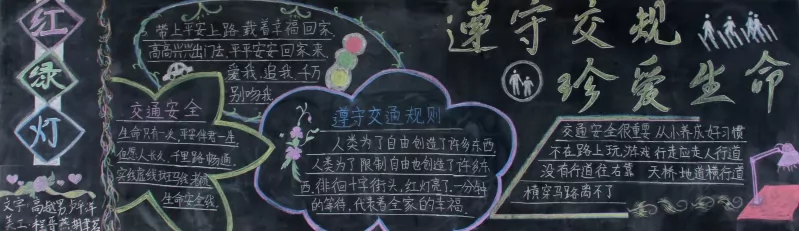 红
绿
灯
带上平安上路,载着幸福回家
高高兴兴出门去,平平安安回家来
爱我,追我,千万
别吻我
遵守交规
珍爱生命
交通安全
生命只有一次,平安伴君一生
但愿人长久,千里路畅通
实线虚线斑马线,都是
生命安全线
遵守交通规则
人类为了自由创造了许多东西,
人类为了限制自由也创造了许多东
西,徘徊十字街头,红灯亮了,一分钟
的等待,代表着全家的幸福.
交通安全很重要 从小养成好习惯
不在路上玩游戏 行走应走人行道
没有行道往右靠 天桥地道横行道
横穿马路离不了
文字:
美工:程晋燕